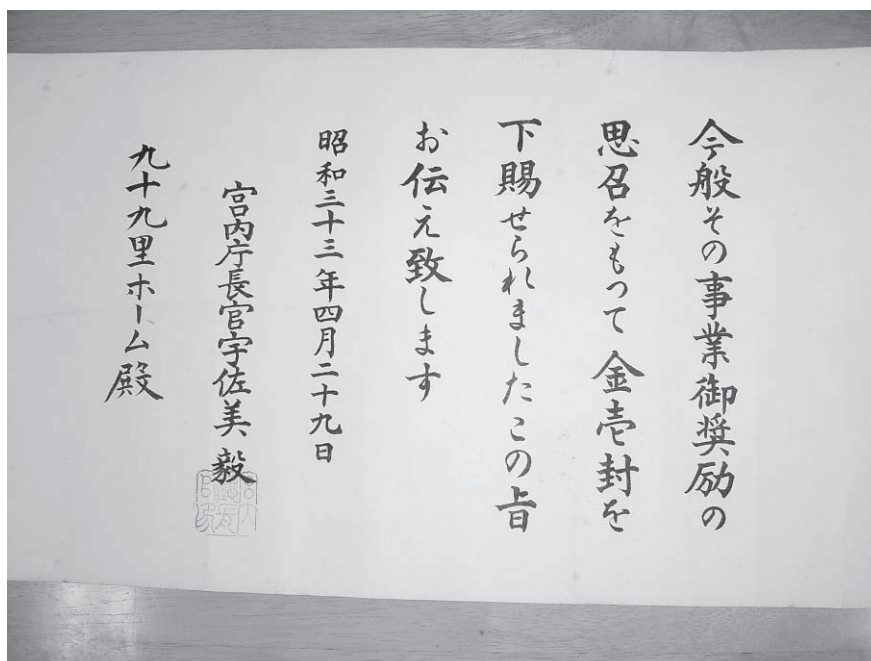 今般その事業御奨励の
思召をもつて金壱封を
下賜せられましたこの旨
お伝え致します
昭和三十三年四月二十九日
宮内庁長官宇佐美毅
九十九里ホーム殿